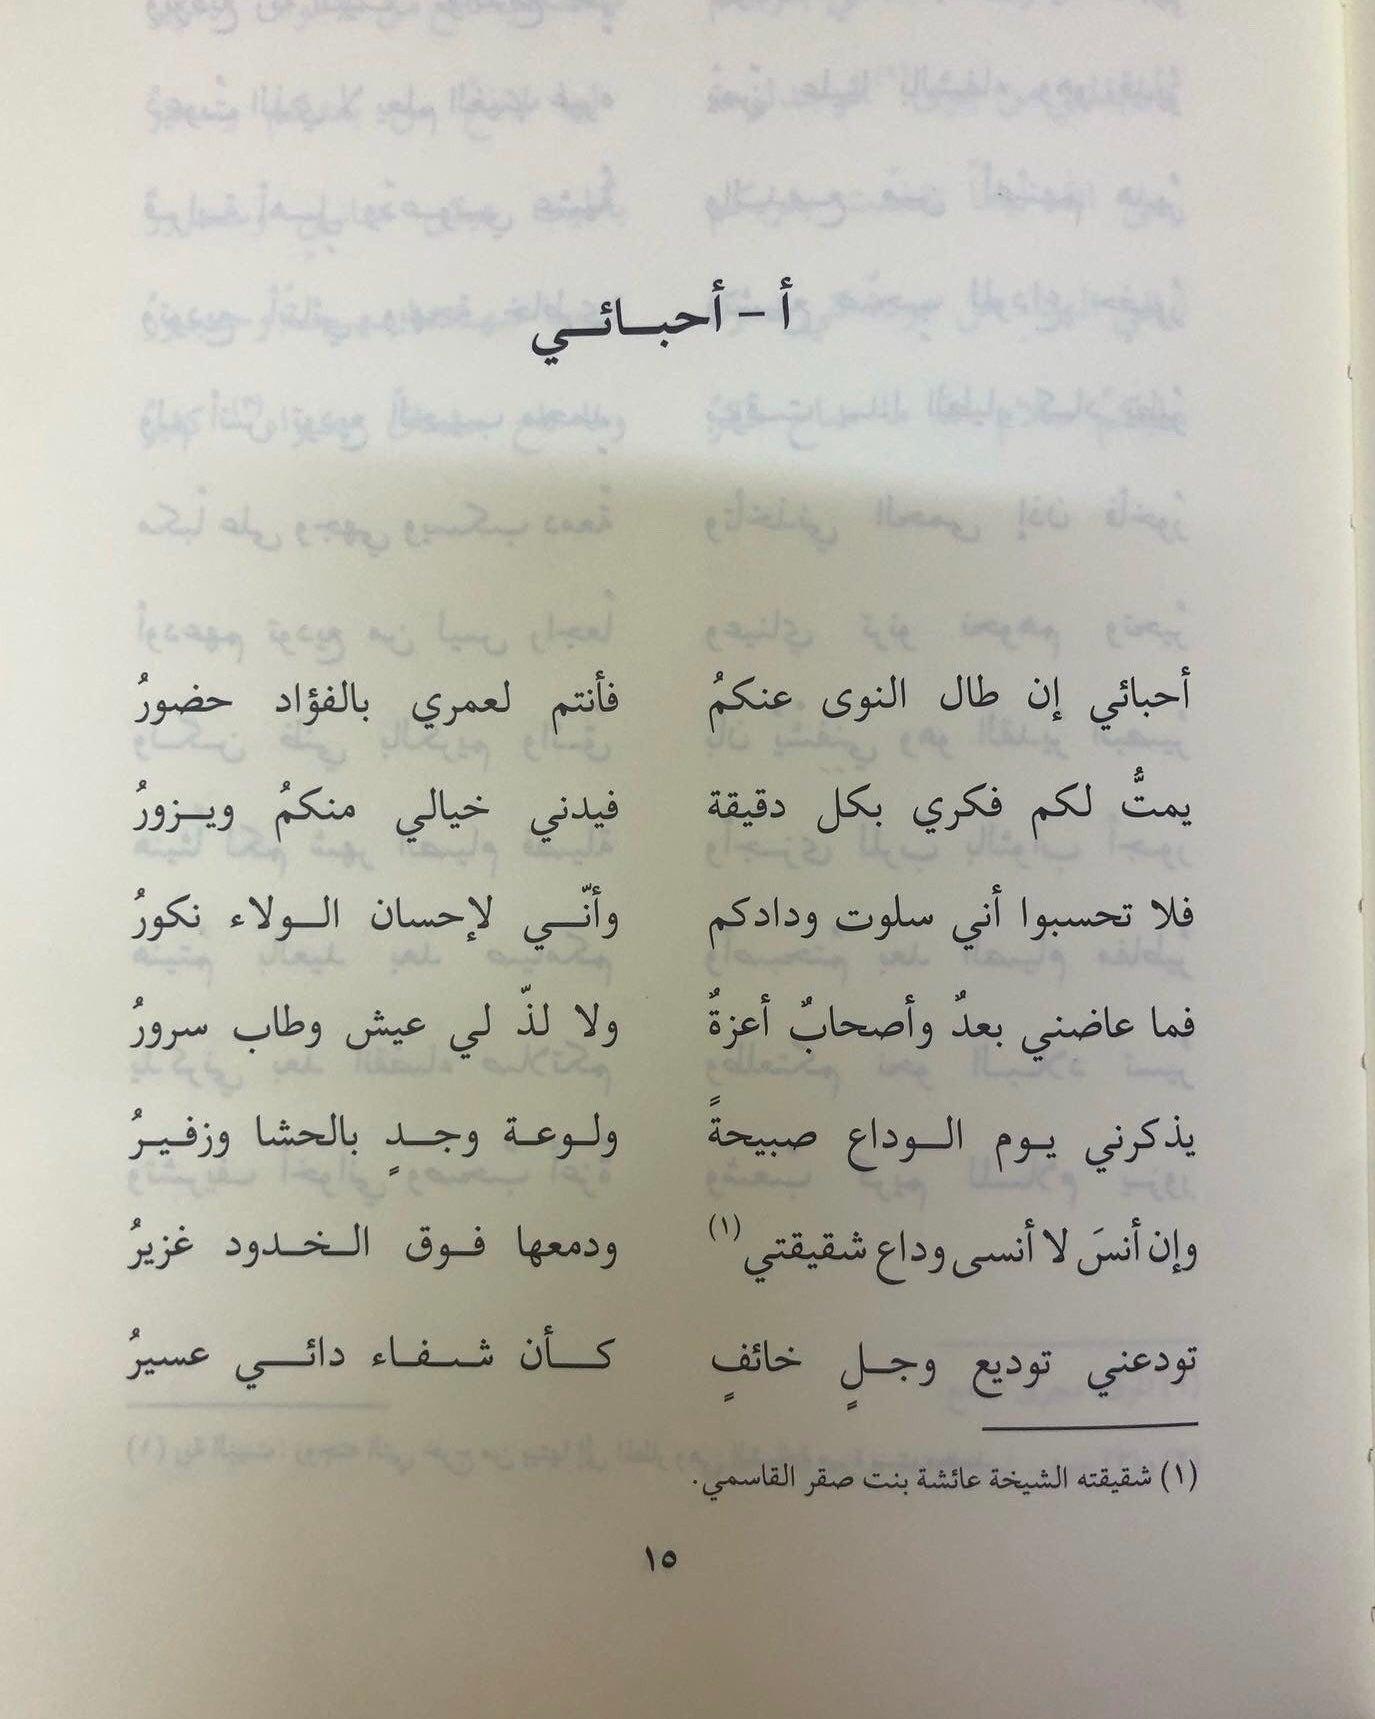 أ - أحبـائـي
أحبائي إن طال النوى عنكمُ فأنتم لعمري بالفؤاد حضورُ
يمتُّ لكم فكري بكل دقيقة فيدني خيالي منكمُ ويـزورُ
فلا تحسبوا أني سلوت ودادكم وأنّـي لإحسان الـولاء نكورُ
فما عاضني بعدٌ وأصحابٌ أعزةٌ ولا لذّ لي عيش وطاب سرورُ
يذكرني يـوم الـوداع صبيحةً ولـوعـة وجـدٍ بالحشا وزفـيـرُ
وإن أنسَ لا أنسى وداع شقيقتي (١) ودمعها فـوق الـخـدود غزيرُ
تودعني توديع وجـلٍ خائفٍ كـأن شـفـاء دائـي عسيرُ
(١) شقيقته الشيخة عائشة بنت صقر القاسمي.
١٥